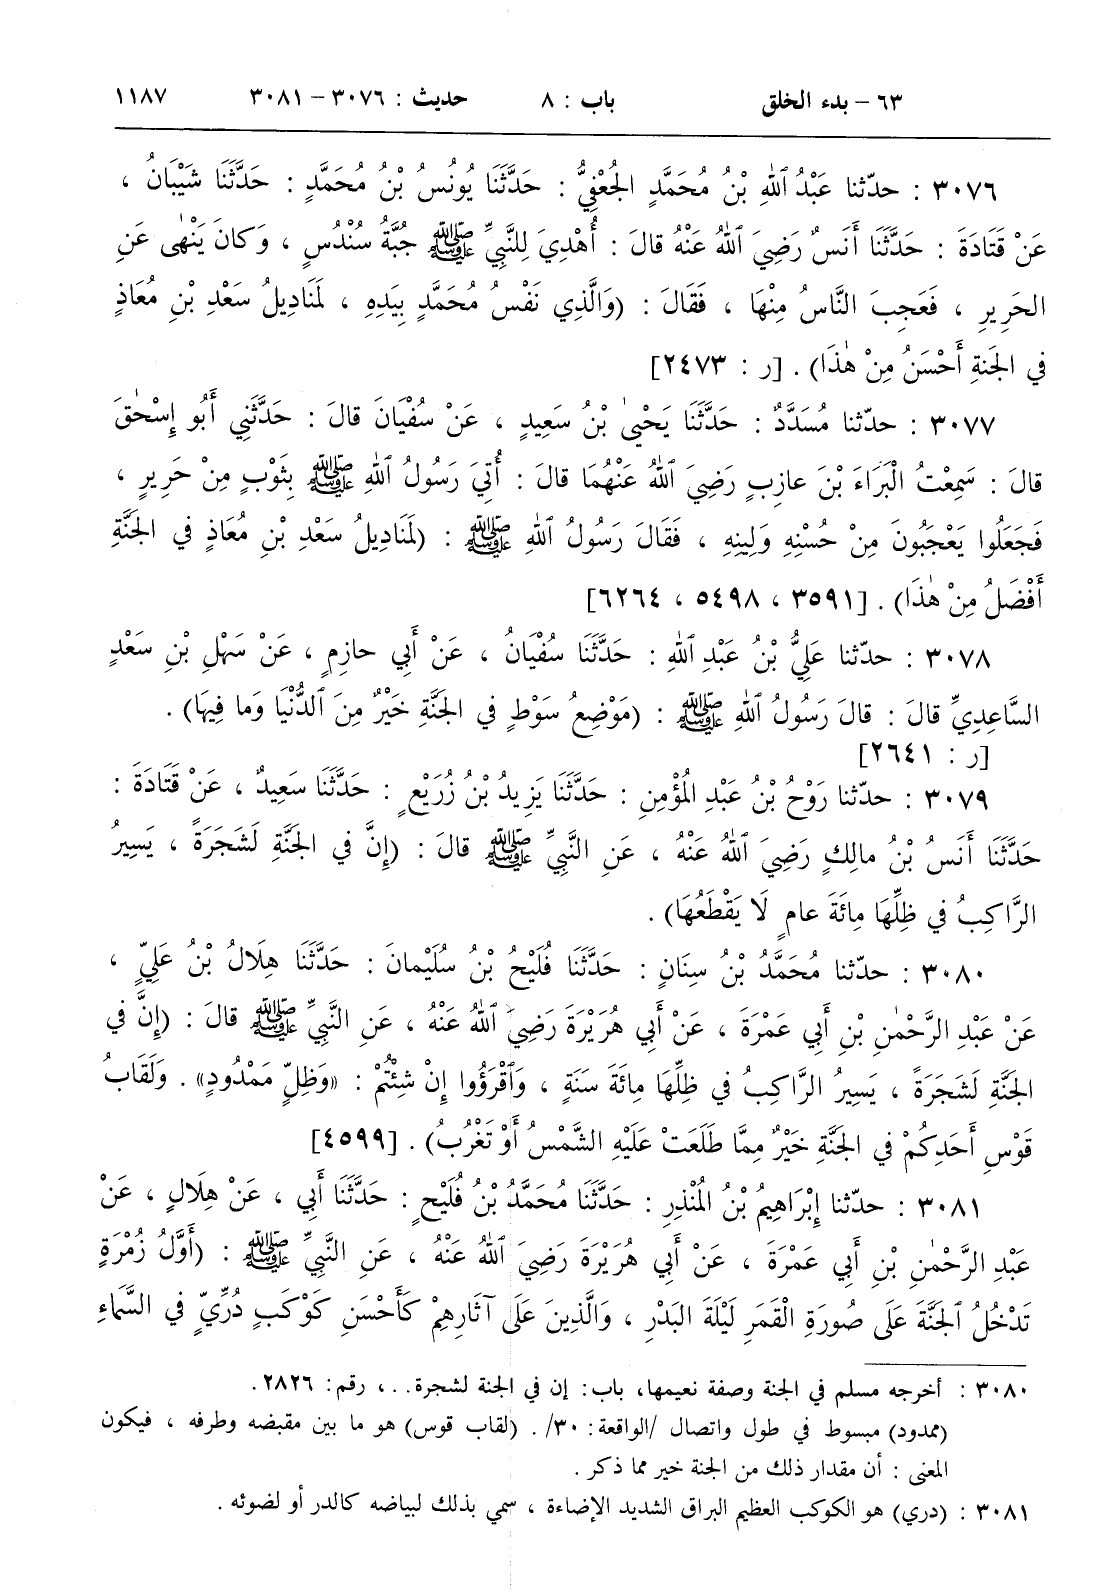 ٦٣ – بدء الخلق باب : ٨ حديث : ٣٠٧٦ – ٣٠٨١ ١١٨٧
٣٠٧٦ : حدّثنا عَبْدُ ٱللهِ بْنُ مُحَمَّدٍ الجُعْفِيُّ : حَدَّثَنَا يُونُسُ بْنُ مُحَمَّدٍ : حَدَّثَنَا شَيْبَانُ ،
عَنْ قَتَادَةَ : حَدَّثَنَا أَنَسٌ رَضِيَ ٱللهُ عَنْهُ قالَ : أُهْدِيَ لِلنَّبِيِّ ﷺ جُبَّةُ سُنْدُسٍ ، وَكانَ يَنْهٰى عَنِ
الحَرِيرِ ، فَعَجِبَ النَّاسُ مِنْهَا ، فَقَالَ : (وَالَّذِي نَفْسُ مُحَمَّدٍ بِيَدِهِ ، لَمَنَادِيلُ سَعْدِ بْنِ مُعَاذٍ
في الجَنةِ أَحْسَنُ مِنْ هٰذَا) . [ر : ٢٤٧٣]
٣٠٧٧ : حدّثنا مُسَدَّدٌ : حَدَّثَنَا يَحْيىٰ بْنُ سَعِيدٍ ، عَنْ سُفْيَانَ قالَ : حَدَّثَنِي أَبُو إِسْحٰقَ
قالَ : سَمِعْتُ الْبَرَاءَ بْنَ عازِبٍ رَضِيَ ٱللهُ عَنْهُمَا قالَ : أُتِيَ رَسُولُ ٱللهِ ﷺ بِثَوْبٍ مِنْ حَرِيرٍ ،
فَجَعَلُوا يَعْجَبُونَ مِنْ حُسْنِهِ وَلِينِهِ ، فَقَالَ رَسُولُ ٱللهِ ﷺ : (لَمَنَادِيلُ سَعْدِ بْنِ مُعَاذٍ في الجَنَّةِ
أَفْضَلُ مِنْ هٰذَا) . [٣٥٩١ ، ٥٤٩٨ ، ٦٢٦٤]
٣٠٧٨ : حدّثنا عَلِيُّ بْنُ عَبْدِ ٱللهِ : حَدَّثَنَا سُفْيَانُ ، عَنْ أَبِي حازِمٍ ، عَنْ سَهْلِ بْنِ سَعْدٍ
السَّاعِدِيِّ قالَ : قالَ رَسُولُ ٱللهِ ﷺ : (مَوْضِعُ سَوْطٍ في الجَنَّةِ خَيْرٌ مِنَ ٱلدُّنْيَا وَما فِيهَا) .
[ر : ٢٦٤١]
٣٠٧٩ : حدّثنا رَوْحُ بْنُ عَبْدِ المُؤْمِنِ : حَدَّثَنَا يَزِيدُ بْنُ زُرَيْعٍ : حَدَّثَنَا سَعِيدٌ ، عَنْ قَتَادَةَ :
حَدَّثَنَا أَنَسُ بْنُ مالِكٍ رَضِيَ ٱللهُ عَنْهُ ، عَنِ النَّبِيِّ ﷺ قالَ : (إِنَّ في الجَنَّةِ لَشَجَرَةً ، يَسِيرُ
الرَّاكِبُ في ظِلِّهَا مِائَةَ عامٍ لَا يَقْطَعُهَا) .
٣٠٨٠ : حدّثنا مُحَمَّدُ بْنُ سِنَانٍ : حَدَّثَنَا فُلَيْحُ بْنُ سُلَيْمانَ : حَدَّثَنَا هِلَالُ بْنُ عَلِيٍّ ،
عَنْ عَبْدِ الرَّحْمٰنِ بْنِ أَبِي عَمْرَةَ ، عَنْ أَبِي هُرَيْرَةَ رَضِيَ ٱللهُ عَنْهُ ، عَنِ النَّبِيِّ ﷺ قالَ : (إِنَّ في
الجَنَّةِ لَشَجَرَةً ، يَسِيرُ الرَّاكِبُ في ظِلِّهَا مِائَةَ سَنَةٍ ، وَٱقْرَؤُوا إِنْ شِئْتُمْ : «وَظِلٍّ مَمْدُودٍ» . وَلَقَابُ
قَوْسِ أَحَدِكُمْ في الجَنَّةِ خَيْرٌ مِمَّا طَلَعَتْ عَلَيْهِ الشَّمْسُ أَوْ تَغْرُبُ) . [٤٥٩٩]
٣٠٨١ : حدّثنا إِبْرَاهِيمُ بْنُ المُنْذِرِ : حَدَّثَنَا مُحَمَّدُ بْنُ فُلَيْحٍ : حَدَّثَنَا أَبِي ، عَنْ هِلَالٍ ، عَنْ
عَبْدِ الرَّحْمٰنِ بْنِ أَبِي عَمْرَةَ ، عَنْ أَبِي هُرَيْرَةَ رَضِيَ ٱللهُ عَنْهُ ، عَنِ النَّبِيِّ ﷺ : (أَوَّلُ زُمْرَةٍ
تَدْخُلُ ٱلجَنَّةَ عَلَى صُورَةِ الْقَمَرِ لَيْلَةَ البَدْرِ ، وَالَّذِينَ عَلَى آثَارِهِمْ كَأَحْسَنِ كَوْكَبٍ دُرِّيٍّ في السَّمَاءِ
٣٠٨٠ : أخرجه مسلم في الجنة وصفة نعيمها، باب: إن في الجنة لشجرة..، رقم: ٢٨٢٦.
(ممدود) مبسوط في طول واتصال /الواقعة: ٣٠/. (لقاب قوس) هو ما بين مقبضه وطرفه ، فيكون
المعنى : أن مقدار ذلك من الجنة خير مما ذكر .
٣٠٨١ : (دري) هو الكوكب العظيم البراق الشديد الإضاءة ، سمي بذلك لبياضه كالدر أو لضوئه .